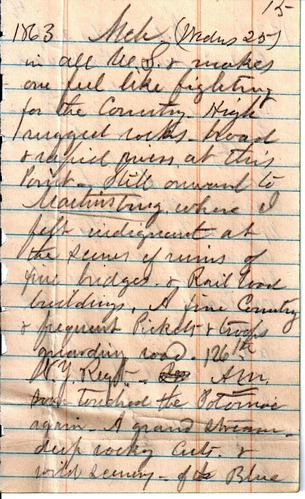 15
1863 Mch (Wednes 25)
in all U.S. & makes
one feel like fighting
for the Country. High
rugged rocks - broad
& rapid rivers at this
Point - Still onward to
Martinsburg where I
felt indignant at
the scenes of ruins of
fine bridges. & Rail Road
buildings. A fine Country
& frequent Pickets & troops
guarding road. 126th
NY Regt - A.M.
Soon touched the Potomac
again. A grand stream -
deep rocky Cuts. &
wild scenery - of Blue